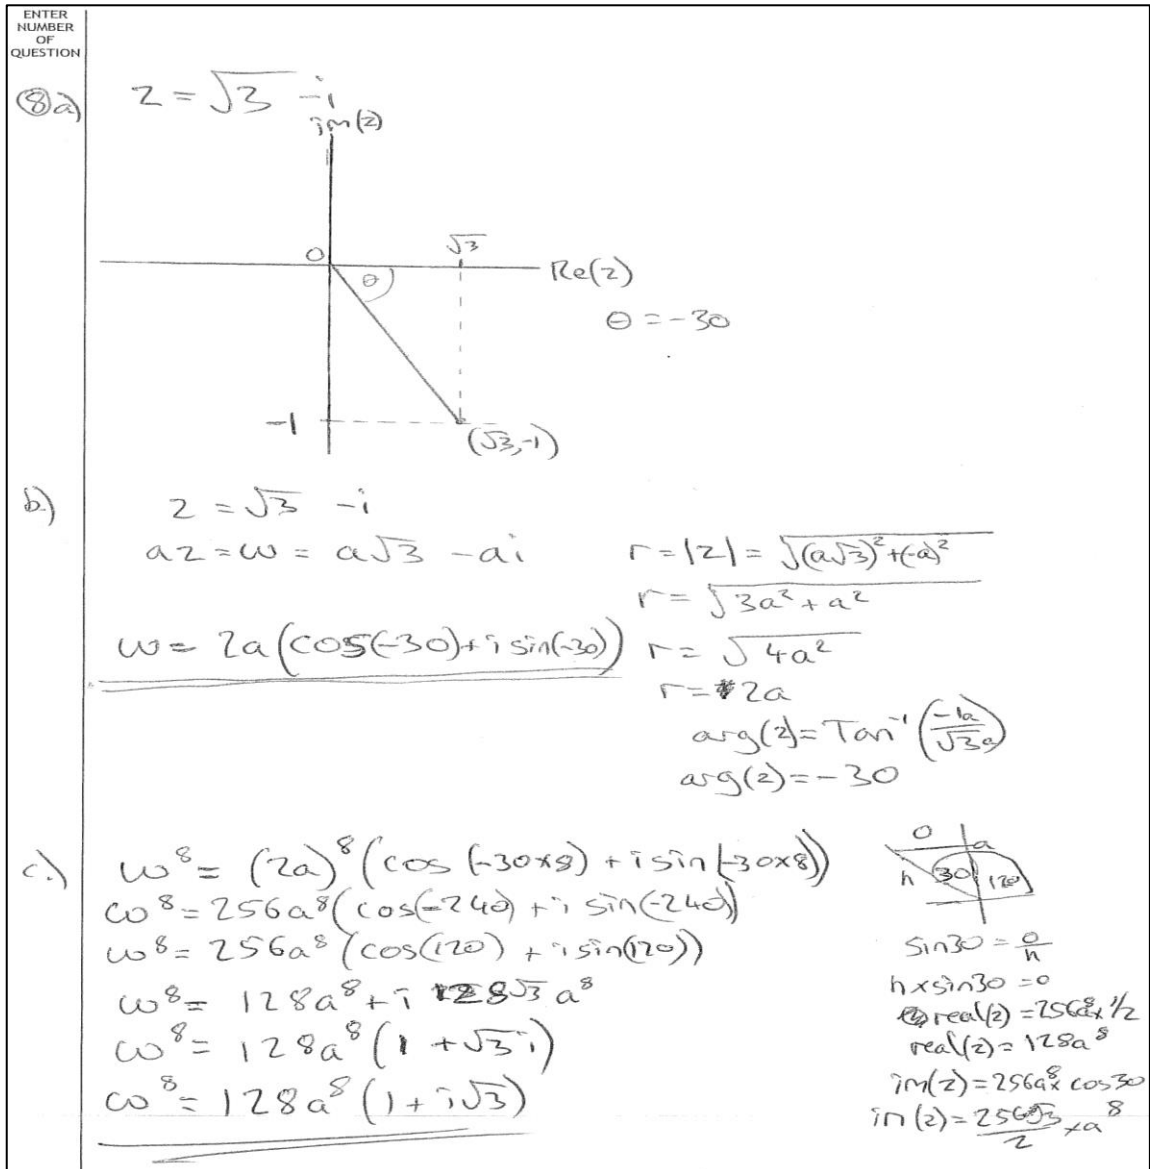 ENTER
NUMBER
OF
QUESTION
8a) z = √3 - i
im(z)
0 √3 Re(z)
θ
θ = -30
-1 (√3, -1)
b.) z = √3 - i
az = w = a√3 - ai
r = |z| = √((a√3)² + (-a)²
r = √(3a² + a²)
w = 2a(cos(-30) + i sin(-30))
r = √(4a²)
r = 2a
arg(z) = Tan⁻¹(-1a/√3a)
arg(z) = -30
c.) w⁸ = (2a)⁸(cos(-30×8) + i sin(-30×8))
w⁸ = 256a⁸(cos(-240) + i sin(-240))
w⁸ = 256a⁸(cos(120) + i sin(120))
w⁸ = 128a⁸ + i 128√3 a⁸
w⁸ = 128a⁸(1 + √3i)
w⁸ = 128a⁸(1 + i√3)
o a
h 30 120
sin30 = o/h
h×sin30 = o
real(z) = 256a⁸× 1/2
real(z) = 128a⁸
im(z) = 256a⁸× cos30
im(z) = 256√3/2 × a⁸